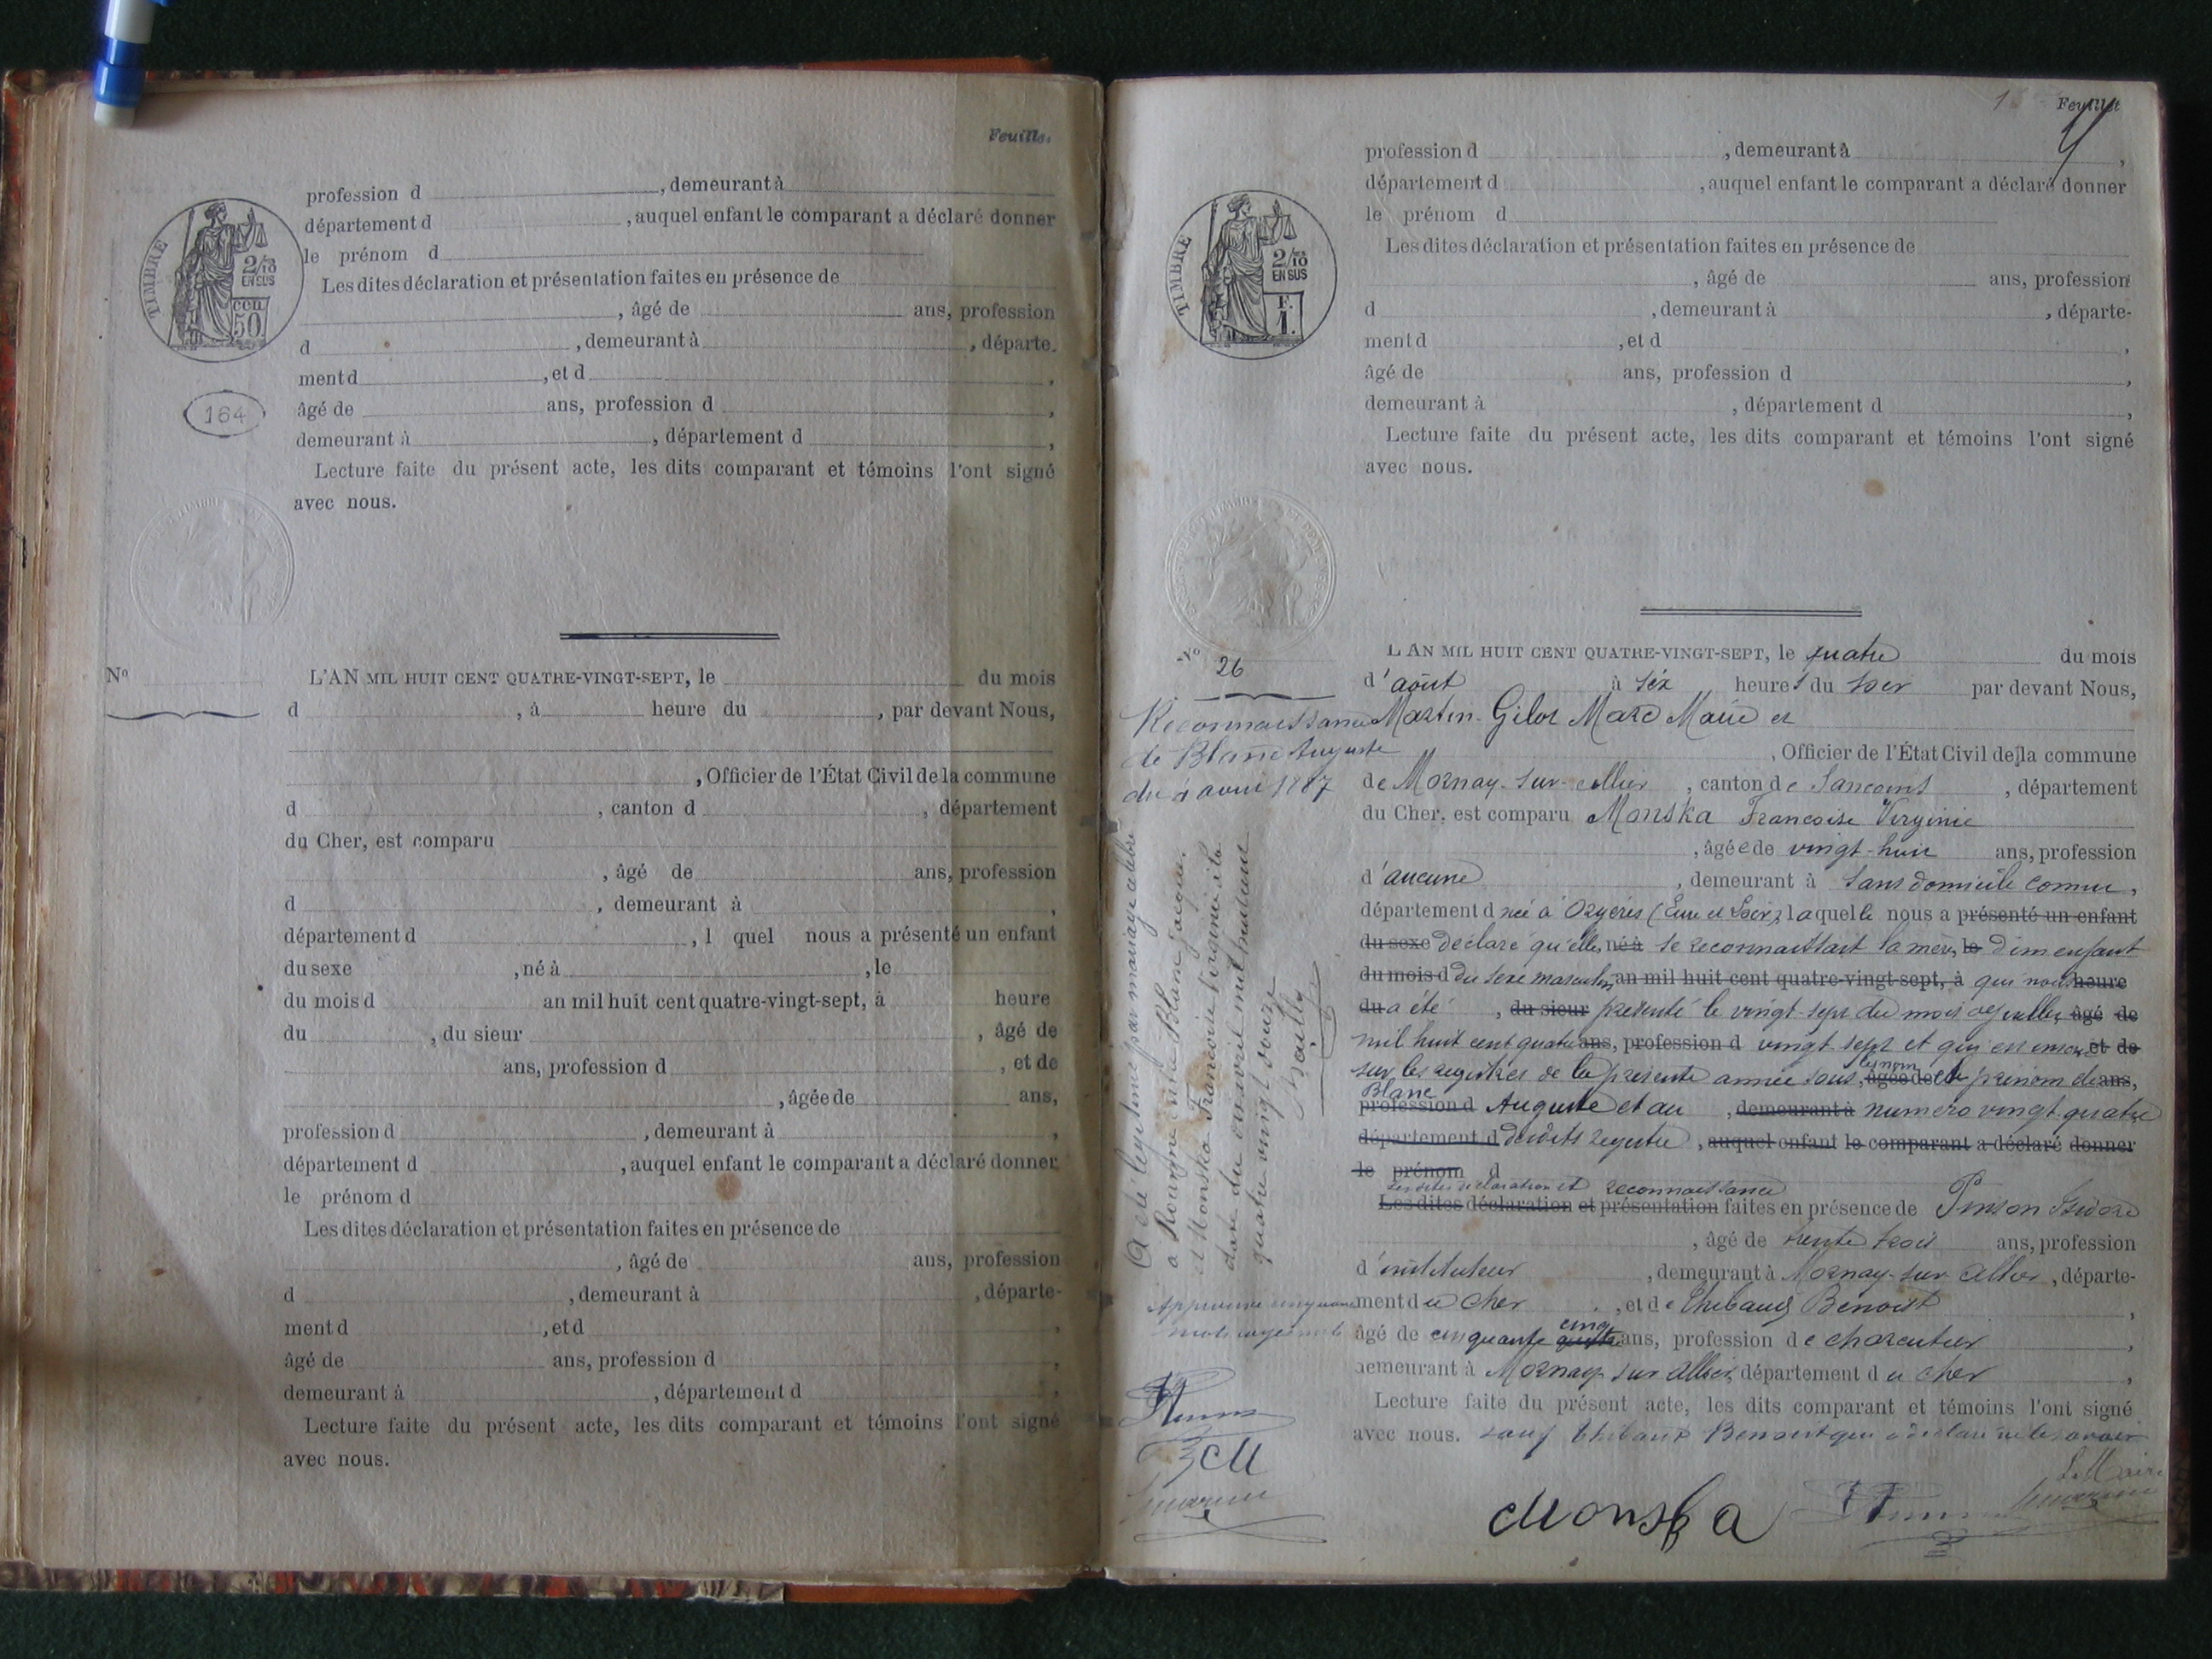 Feuille.
profession d , demeurant à
département d , auquel enfant le comparant a déclaré donner
le prénom d
Les dites déclaration et présentation faites en présence de
, âgé de ans, profession
d , demeurant à , départe-
ment d , et d ,
âgé de ans, profession d ,
demeurant à , département d ,
Lecture faite du présent acte, les dits comparant et témoins l'ont signé
avec nous.
TIMBRE
2/10
EN SUS
cen
50
164
No
L'AN MIL HUIT CENT QUATRE-VINGT-SEPT, le du mois
d , à heure du , par devant Nous,
, Officier de l'État Civil de la commune
d , canton d , département
du Cher, est comparu
, âgé de ans, profession
d , demeurant à ,
département d , l quel nous a présenté un enfant
du sexe , né à , le
du mois d an mil huit cent quatre-vingt-sept, à heure
du , du sieur , âgé de
ans, profession d , et de
, âgée de ans,
profession d , demeurant à ,
département d , auquel enfant le comparant a déclaré donner
le prénom d
Les dites déclaration et présentation faites en présence de
, âgé de ans, profession
d , demeurant à , départe-
ment d , et d ,
âgé de ans, profession d ,
demeurant à , département d ,
Lecture faite du présent acte, les dits comparant et témoins l'ont signé
avec nous.
Feuillet
profession d , demeurant à ,
département d , auquel enfant le comparant a déclaré donner
le prénom d
Les dites déclaration et présentation faites en présence de
, âgé de ans, profession
d , demeurant à , départe-
ment d , et d ,
âgé de ans, profession d ,
demeurant à , département d ,
Lecture faite du présent acte, les dits comparant et témoins l'ont signé
avec nous.
TIMBRE
2/10
EN SUS
F.
1.
No 26
Reconnaissance
de Blanc Auguste
du 4 août 1887
A été légitimé par mariage célébré
à entre Blanc Jacques
et Monska Francoise Virginie à la
date du avril mil huit cent
quatre vingt douze
Approuvé
mots rayés nuls
L'AN MIL HUIT CENT QUATRE-VINGT-SEPT, le quatre du mois
d'août à six heures du soir par devant Nous,
Martin-Gilor Marc Marie er
, Officier de l'État Civil de la commune
de Mornay-sur-Allier , canton de Sancoins , département
du Cher, est comparu Monska Francoise Virginie
, âgée de vingt-huit ans, profession
d'aucune , demeurant à sans domicile connu,
département d née à Ozgères (Eure et Loir) laquelle nous a présenté un enfant
du sexe déclaré qu'elle né à se reconnaissait la mère, le d'un enfant
du mois d du sexe masculin an mil huit cent quatre-vingt-sept, à qui nous heure
du a été , du sieur présenté le vingt-sept du mois de juillet, âgé de
mil huit cent quatre ans, profession d vingt sept et qui est inscrit et de
sur les registres de la présente année sous, les nom âgée de et prénom de ans,
Blanc
profession d Auguste et au , demeurant à numéro vingt-quatre
département d desdits registre , auquel enfant le comparant a déclaré donner
le prénom d
Les dites déclaration et reconnaissance
Les dites déclaration et présentation faites en présence de Pinson Isidore
, âgé de trente trois ans, profession
d'instituteur , demeurant à Mornay-sur-Allier , départe-
ment du Cher , et de Thibaud Benoist ,
cinq
âgé de cinquante quatre ans, profession de charcutier ,
demeurant à Mornay sur Allier, département du Cher ,
Lecture faite du présent acte, les dits comparant et témoins l'ont signé
avec nous. sauf Thibaud Benoist qui a déclaré ne le savoir
Le Maire
Monska